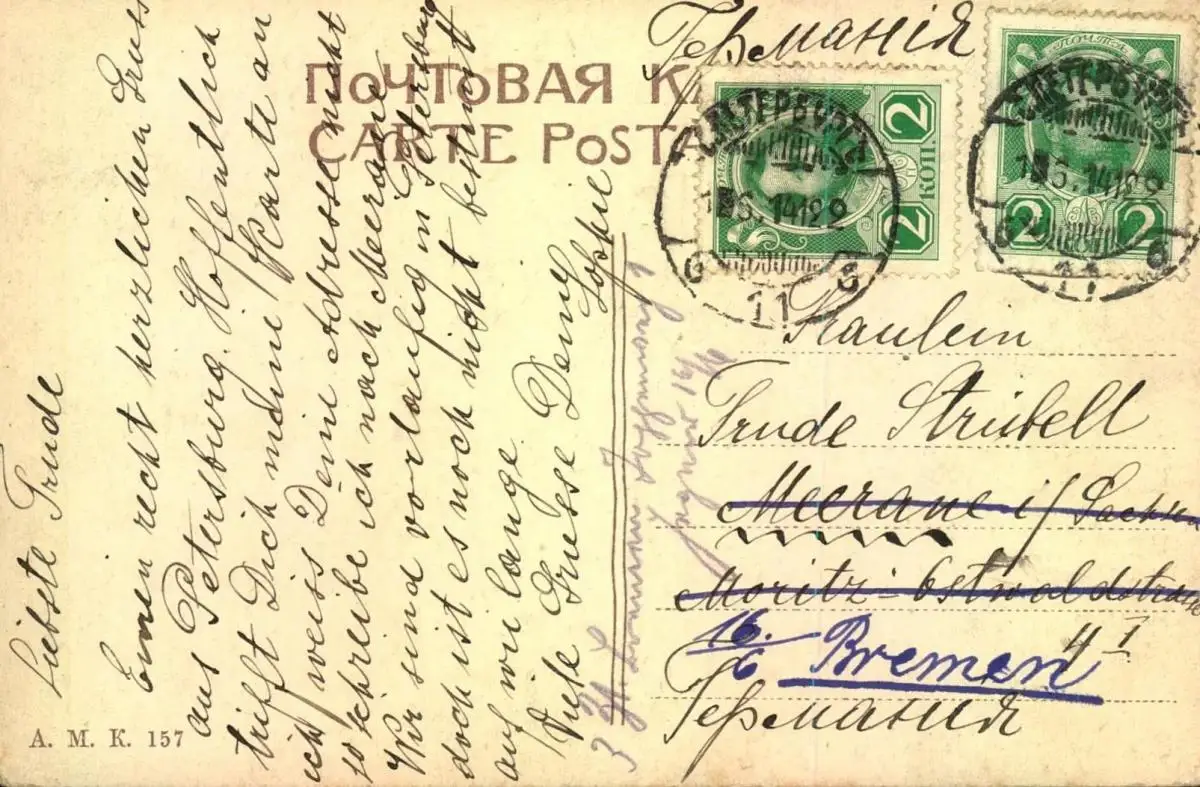 Германія
ПОЧТОВАЯ К
CARTE POSTA
ПОЧТА
2
2
КОП.
2
2
С.ПЕТЕРБУРГЪ
5.14 12
6 6
11
С.ПЕТЕРБУРГЪ
5.14 12
6
11
Liebste Trude
Einen recht herzlichen Gruss
aus Petersburg. Hoffentlich
trifft Dich meine Karte an
ich weiss Deine Adresse nicht
so schreibe ich nach Meerane
Wir sind vorläufig in Petersburg
doch ist es noch nicht bestimmt
auf wie lange.
Viele Grüsse Deine
Sophie
Fräulein
Trude Strubell
Meerane i/ Sachs.
Moritz Ostwaldstrasse
4 I
16.
6 Bremen
Германия
А. М. К. 157